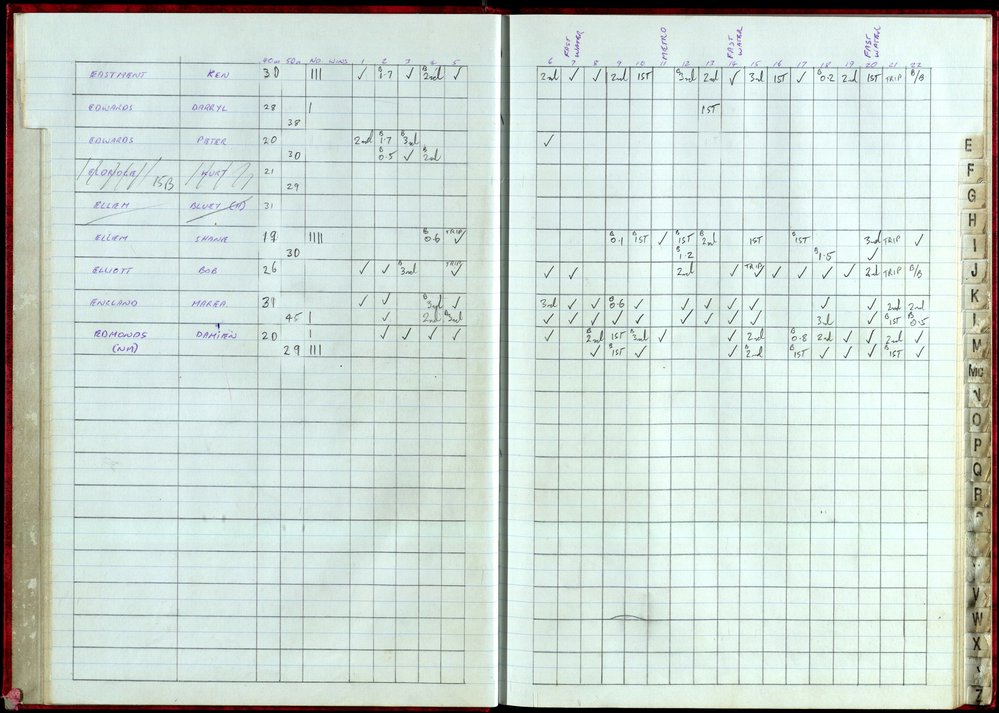 EAST WATER METRO EAST WATER EAST WATER
40m 50m NO. WINS 1 2 3 4 5 6 7 8 9 10 11 12 13 14 15 16 17 18 19 20 21 22
EASTMENT KEN 30 |||| ✓ B 1.7 ✓ B 2nd ✓ 2nd ✓ ✓ 2nd 1ST B 3rd 2nd ✓ 3rd 1ST ✓ B 0.2 2nd 1ST TRIP B/B
EDWARDS DARRYL 28 | 1ST
38
EDWARDS PETER 20 2nd B 1.7 B 3rd ✓
30 B 0.5 ✓ B 2nd
KURT 21
29
ELLIEM BLUEY (H) 31
ELLIEM SHANE 19 |||| B 0.6 TRIP ✓ B 0.1 B 1ST ✓ B 1ST B 2nd 1ST B 1ST 3rd TRIP ✓
30 B 1.2 B 1.5 ✓
ELLIOTT BOB 26 ✓ ✓ B 3nd TRIP ✓ ✓ ✓ 2nd ✓ TRIP ✓ ✓ ✓ ✓ ✓ 2nd TRIP B/B
ENGLAND MAREA 39 ✓ ✓ B 3rd ✓ 3rd ✓ ✓ B 0.6 ✓ ✓ ✓ ✓ ✓ ✓ ✓ 2nd 2nd
45 | ✓ 2nd B 3rd ✓ ✓ ✓ ✓ ✓ ✓ ✓ ✓ ✓ 3rd ✓ B 1ST B 0.5
EDMONDS DAMIEN 20 | ✓ ✓ ✓ ✓ ✓ B 2nd 1ST B 3rd ✓ ✓ 2nd B 0.8 2nd ✓ ✓ 2nd ✓
(NM) 29 ||| ✓ B 1ST ✓ ✓ B 2nd B 1ST ✓ ✓ ✓ B 1ST ✓
E
F
G
H
I
J
K
L
M
Mc
N
O
P
Q
R
V
W
X
Z